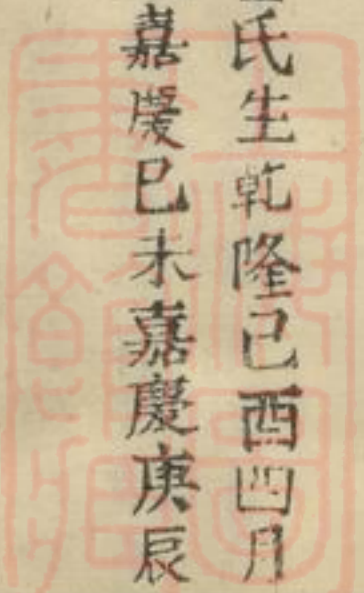 氏生乾隆己酉四月
嘉慶己未嘉慶庚辰